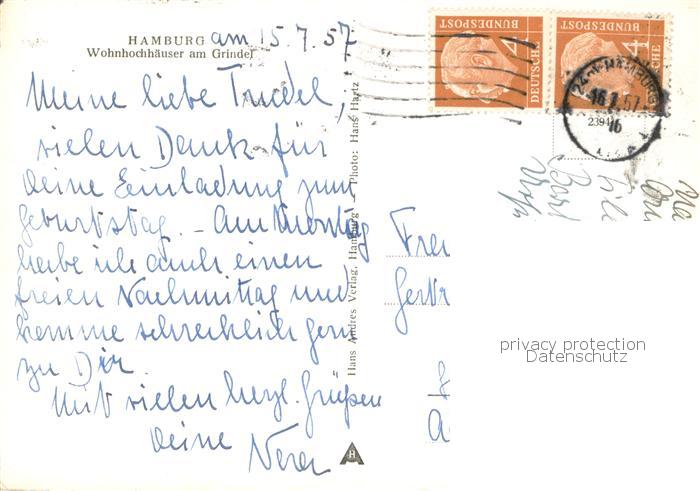 HAMBURG am 15.7.57
Wohnhochhäuser am Grindel
Meine liebe Trudel,
vielen Dank für
Deine Einladung zum
Geburtstag. – Am Montag
habe ich auch einen
freien Nachmittag und
komme schrecklich gern
zu Dir.
Mit vielen herzl. Grüßen
Deine
Vera
Hans Andres Verlag, Hamburg — Photo: Hans Hartz
DEUTSCHE BUNDESPOST 4
DEUTSCHE BUNDESPOST 4
HAMBURG
16.7.57
16
23941
Frau
Gertr
privacy protection
Datenschutz